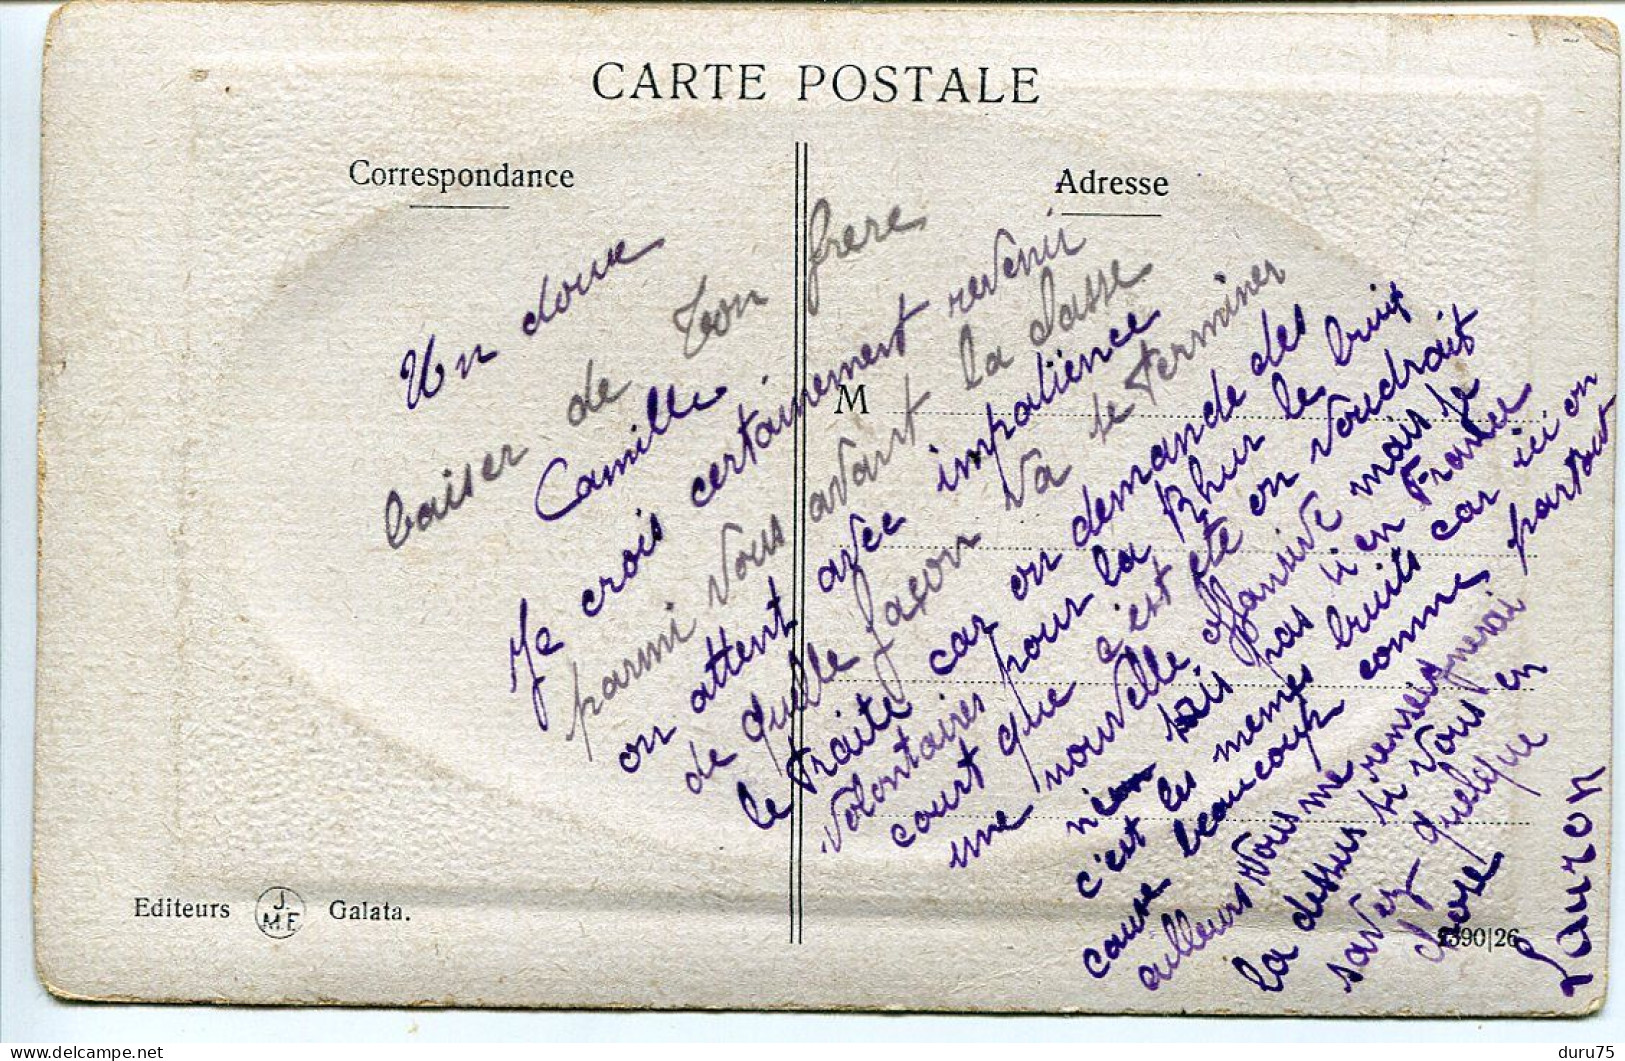 CARTE POSTALE
Correspondance
Adresse
M
Un doux
baiser de ton frere
Camille
Je crois certainement revenir
parmi vous avant la classe
on attent avec impatience
de quelle façon va se terminer
le traité car on demande des
volontaires pour la Rhur le bruit
court que c'est été on voudrait
une nouvelle offansive mais je
n'en sais pas si en France
c'est les memes bruits car ici on
cause beaucoup comme partout
ailleurs vous me renseignerai
la dessus si vous en
savez quelque
chose
Lauzon
Editeurs J. M.F Galata.
2390|26
delcampe.net
duru75